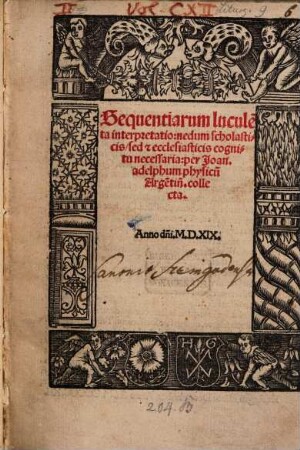 Liturg. 9 6
Sequentiarum luculē
ta interpretatio: nedum scholasti
cis/ sed ⁊ ecclesiasticis cogni
tu necessaria: per Joan.
adelphum physicū
Argētiñ. colle
cta.
Anno dñi. M.D.XIX.
H G
204. B